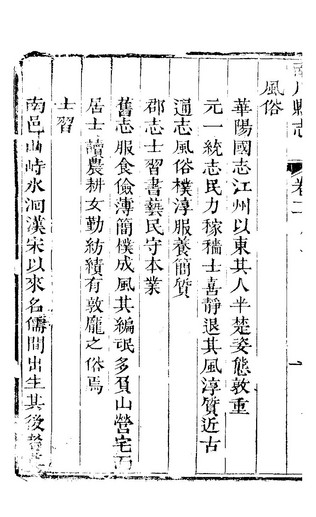 南川縣志 卷二
風俗
華陽國志江州以東其人半楚姿態敦重
元一統志民力稼穡士喜靜退其風淳質近古
通志風俗樸淳服養簡質
郡志士習書藝民守本業
舊志服食儉薄簡樸成風其編氓多負山營宅而
居士讀農耕女勤紡績有敦龐之俗焉
士習
南邑山峙水洄漢宋以來名儒間出生其後